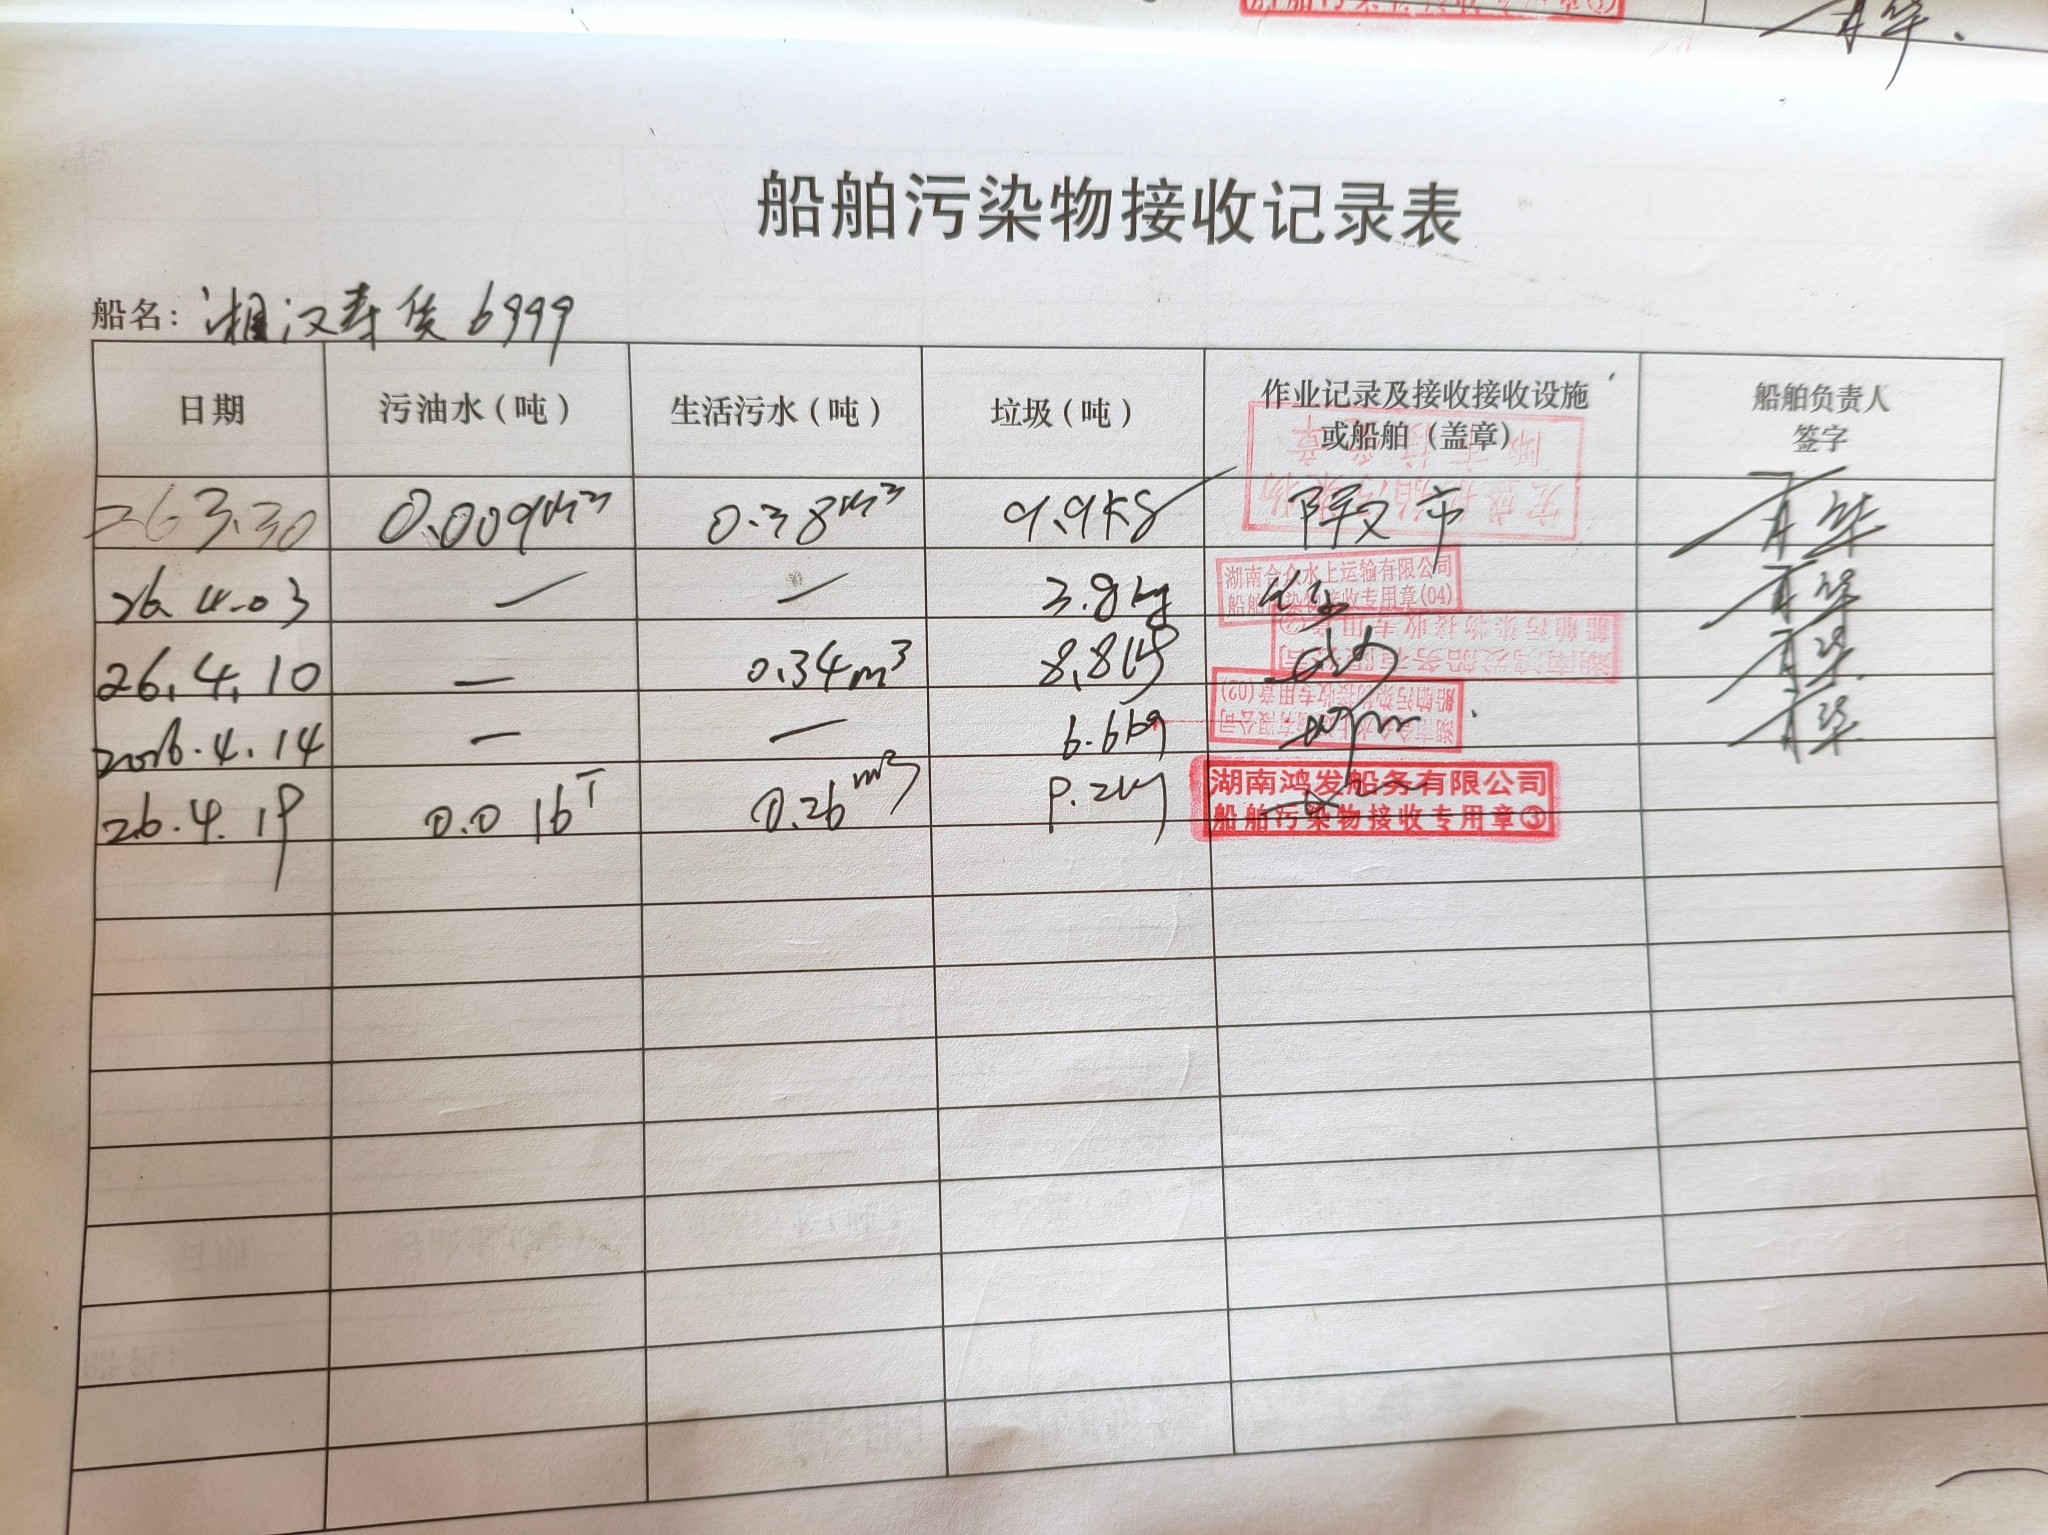 船舶污染物接收记录表
船名: 湘汉寿货6999
日期 污油水(吨) 生活污水(吨) 垃圾(吨) 作业记录及接收接收设施或船舶(盖章) 船舶负责人签字
263.30 0.009m³ 0.38m³ 9.9KG
26.4.03 — — 3.8kg
湖南合众水上运输有限公司
船舶污染物接收专用章(04)
26.4.10 — 0.34m³ 8.8kg
湖南鸿发船务有限公司
船舶污染物接收专用章②
2026.4.14 — — 6.6kg
湖南合众水上运输有限公司
船舶污染物接收专用章(02)
26.4.19 0.016T 0.26m³ 9.2kg
湖南鸿发船务有限公司
船舶污染物接收专用章③